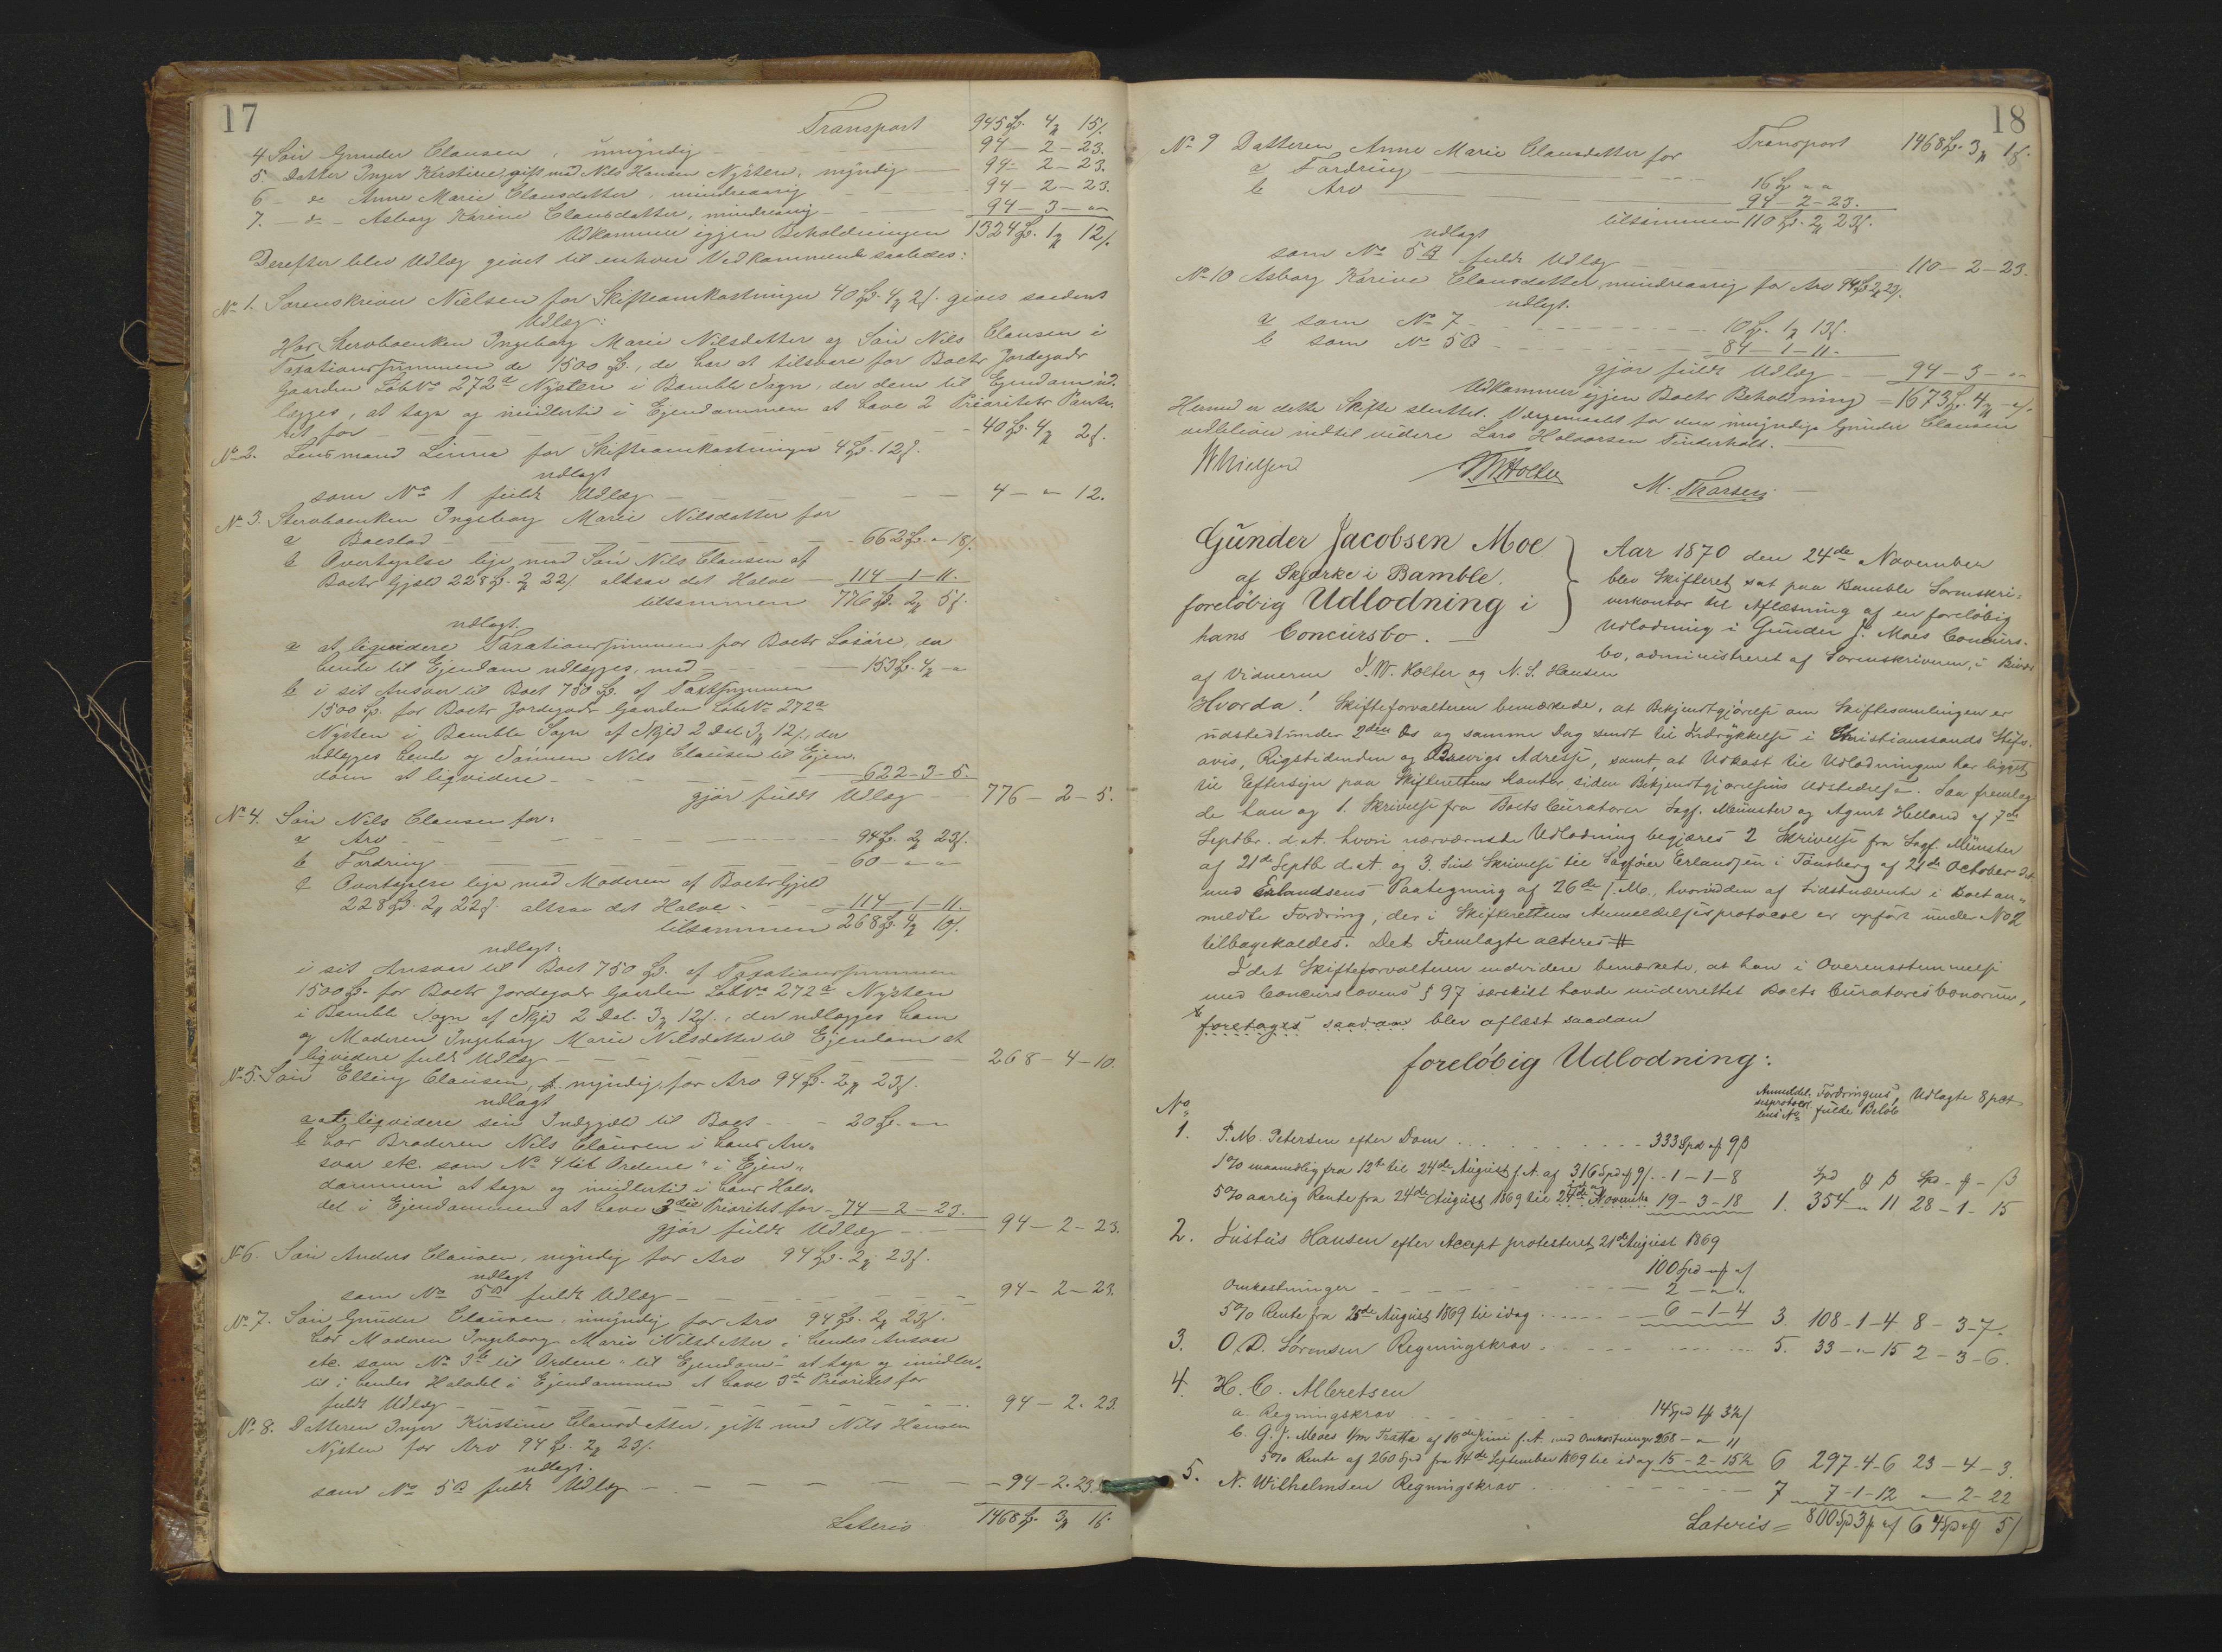 17
Transport 945 Sp. 4 ₰ 15 s.
4 Søn Gunder Clausen, umyndig — 94 — 2 — 23.
5. Datter Inger Kirstine, gift med Nils Hansen Nysten, myndig — 94 — 2 — 23.
6 — do Anne Marie Clausdatter, mindreaarig — 94 — 2 — 23.
7. — do — Asborg Karine Clausdatter, mindreaarig — 94 — 3 — "
Udkommer igjen Beholdningen 1324 Sp. 1 ₰ 12 s.
Derefter blev Udlæg givet til enhver Vedkommende saaledes:
No 1. Sorenskriver Nielsen for Skifteomkostninger 40 Sp. 4 ₰ 2 s. gives saadant
Udlæg:
Hos Stervboenken Ingeborg Marie Nilsdatter og Søn Nils Clausen i
Taxationssummen de 1500 Sp., de har at tilsvare for Boets Jordegods
Gaarden Løb No 272a Nysten i Bamble Sogn, der dem til Ejendom ud-
lægges, at tage og imidlertid i Ejendommen at have 2 Prioritets Pante-
ret for — 40 Sp. 4 ₰ 2 s.
No 2. Lensmand Linna for Skifteomkostninger 4 Sp. 12 s.
udlagt
som No 1 fuldt Udlæg — 4 — " 12.
No 3. Stervboenken Ingeborg Marie Nilsdatter for
a Boeslod — 662 Sp. " 18 s.
b Overtagelse lige med Søn Nils Clausen af
Boets Gjeld 228 Sp. 2 ₰ 22 s altsaa det Halve — 114 — 1 — 11.
tilsammen 776 Sp. 2 ₰ 5 s.
udlagt.
a at liqvidere Taxationssummen for Boets Løsøre, der
hende til Ejendom udlægges, med — 153 Sp. 4 ₰ — "
b i sit Ansvar til Boet 750 Sp. af Taxtsummen
1500 Sp. for Boets Jordegods Gaarden Løb No 272a
Nysten i Bamble Sogn af Skyld 2 Dal. 3 ₰ 12 s., der
udlægges hende og Sønnen Nils Clausen til Ejen-
dom at liqvidere — 622 — 3 — 5.
gjør fuldt Udlæg — 776 — 2 — 5.
No 4. Søn Nils Clausen for:
a Arv — 94 Sp. 2 ₰ 23 s.
b Fordring — 60 — " — "
c Overtagelse lige med Moderen af Boets Gjeld
228 Sp. 2 ₰ 22 s. altsaa det Halve — 114 — 1 — 11.
tilsammen 268 Sp. 4 ₰ 10 s.
udlagt:
i sit Ansvar til Boet 750 Sp. af Taxationssummen
1500 Sp. for Boets Jordegods Gaarden Løb No 272a Nysten
i Bamble Sogn af Skyld 2 Dal. 3 ₰ 12 s., der udlægges ham
og Moderen Ingeborg Marie Nilsdatter til Ejendom at
liqvidere fuldt Udlæg — 268 — 4 — 10.
No 5. Søn Elling Clausen, myndig, for Arv 94 Sp. 2 ₰ 23 s.
udlagt
a at liqvidere sin Indgjæld til Boet — 20 Sp. " "
b hos Broderen Nils Clausen i hans An-
svar etc. som No 4 til Ordene "i Ejen-
dommen" at tage og imidlertid i hans Halv-
del i Ejendommen at have 3die Prioritet for — 74 — 2 — 23.
gjør fuldt Udlæg — 94 — 2 — 23.
No 6. Søn Anders Clausen, myndig for Arv 94 Sp. 2 ₰ 23 s.
udlagt
som No 5B fuldt Udlæg — 94 — 2 — 23.
No 7. Søn Gunder Clausen, umyndig for Arv 94 Sp. 2 ₰ 23 s.
hos Moderen Ingeborg Marie Nilsdatter i hendes Ansvar
etc. som No 3b til Ordene "til Ejendom" at tage og imidler-
tid i hendes Halvdel i Ejendommen at have 3die Prioritet for
fuldt Udlæg — 94 — 2. 23.
No 8. Datteren Inger Kirstine Clausdatter, gift med Nils Hansen
Nysten for Arv 94 Sp. 2 ₰ 23 s.
udlagt.
som No 5B fuldt Udlæg — 94 — 2. 23.
Lateris 1468 Sp. 3 ₰ 18.
18
Transport 1468 Sp. 3 ₰ 18.
No 9 Datteren Anne Marie Clausdatter for
a Fordring — 16 Sp " "
b Arv — 94 — 2 — 23.
tilsammen 110 Sp. 2 ₰ 23 s.
udlagt
som No 5B fuldt Udlæg — 110 — 2 — 23.
No 10 Asborg Karine Clausdatter, mindreaarig for Arv 94 Sp 2 ₰ 23 s.
udlagt.
a som No 7 — 10 Sp. 1 ₰ 13 s.
b som No 5B — 84 — 1 — 11.
gjør fuldt Udlæg — 94 — 3 — "
Udkommer igjen Boets Beholdning = 1673 Sp. 4 ₰ — " s.
Hermed er dette Skifte sluttet. Værgemaalet for den umyndige Gunder Clausen
vedbliver indtil videre Lars Halvorsen Tinderholt.
W Nielsen T W Holter M. Thorsen
Gunder Jacobsen Moe
af Skjærke i Bamble.
foreløbig Udlodning i
hans Concursbo. —
Aar 1870 den 24de November
blev Skifteret sat paa Bamble Sorenskri-
verkontor til Aflæsning af en foreløbig
Udlodning i Gunder J. Moes Concurs-
bo, administreret af Sorenskriveren, i Bivær
af Vidnerne T. W. Holter og N. S. Hansen
Hvorda! Skifteforvalteren bemærkede, at Bekjendtgjørelse om Skiftesamlingen er
udstedt under 2den ds og samme Dag sendt til Indrykkelse i Christianssands Stifts-
avis, Rigstidenden og Brevigs Adresse, samt, at Udkast til Udlodningen har ligget
til Eftersyn paa Skifterettens Kontor siden Bekjendtgjørelsens Udstedelse. Saa fremlag-
de han og 1. Skrivelse fra Boets Curatorer Sagf. Münster og Agent Helland af 7de
Septbr. d. A. hvori nærværende Udlodning begjæres 2 Skrivelse fra Sagf. Münster
af 21de Septb d. A og 3. Sin Skrivelse til Sagfører Erlandsen i Tønsberg af 21de October d.A.
med Erlandsens Paategning af 26de s. M., hvorved den af Sidstnævnte i Boet an-
meldte Fordring, der i Skifterettens Anmeldelsesprotocol er opført under No 2
tilbagekaldes. Det Fremlagte acteres #
Idet Skifteforvalteren endvidere bemærkede, at han i Overensstemmelse
med Concurslovens § 97 særskilt havde underrettet Boets Curatores bonorum,
foretages saadan blev aflæst saadan
foreløbig Udlodning:
No Anmeldel-sesprotocol-lens No Fordringens fulde Beløb Udlagte 8 pCt
1. P. M. Petersen efter Dom — 333 Spd " ₰ 9 β
1% maanedlig fra 12te til 24de August f. A. af 316 Spd " ₰ 9 s. — 1 — 1 — 8
Spd ₰ β Spd — ₰ — β
5% aarlig Rente fra 24de August 1869 til 24de November 19 — 3 — 18 1. 354 — " 11 28 — 1 — 15
2. Justus Hansen efter Accept protesteret 21de August 1869
100 Spd " ₰ " s
Omkostninger — 2 — " "
5% Rente fra 25de August 1869 til idag — 6 — 1 — 4 3. 108 — 1 — 4 8 — 3 — 7.
3. O. D. Sørensen Regningskrav — 5. 33 — " — 15 2 — 3 — 6.
4. H. C. Albretsen
a. Regningskrav — 14 Spd 1 ₰ 3½ s
b. G. J. Moes Tratta af 16de Juni f. A. med Omkostninger 268 — " — 11
5% Rente af 260 Spd fra 14de September 1869 til idag 15 — 2 — 15½ 6 297 — 4 — 6 23 — 4 — 3.
5. N. Wilhelmsen Regningskrav — 7 7 — 1 — 12 — " — 2 — 22
Lateris = 800 Spd 3 ₰ " s 64 Spd " ₰ 5 s